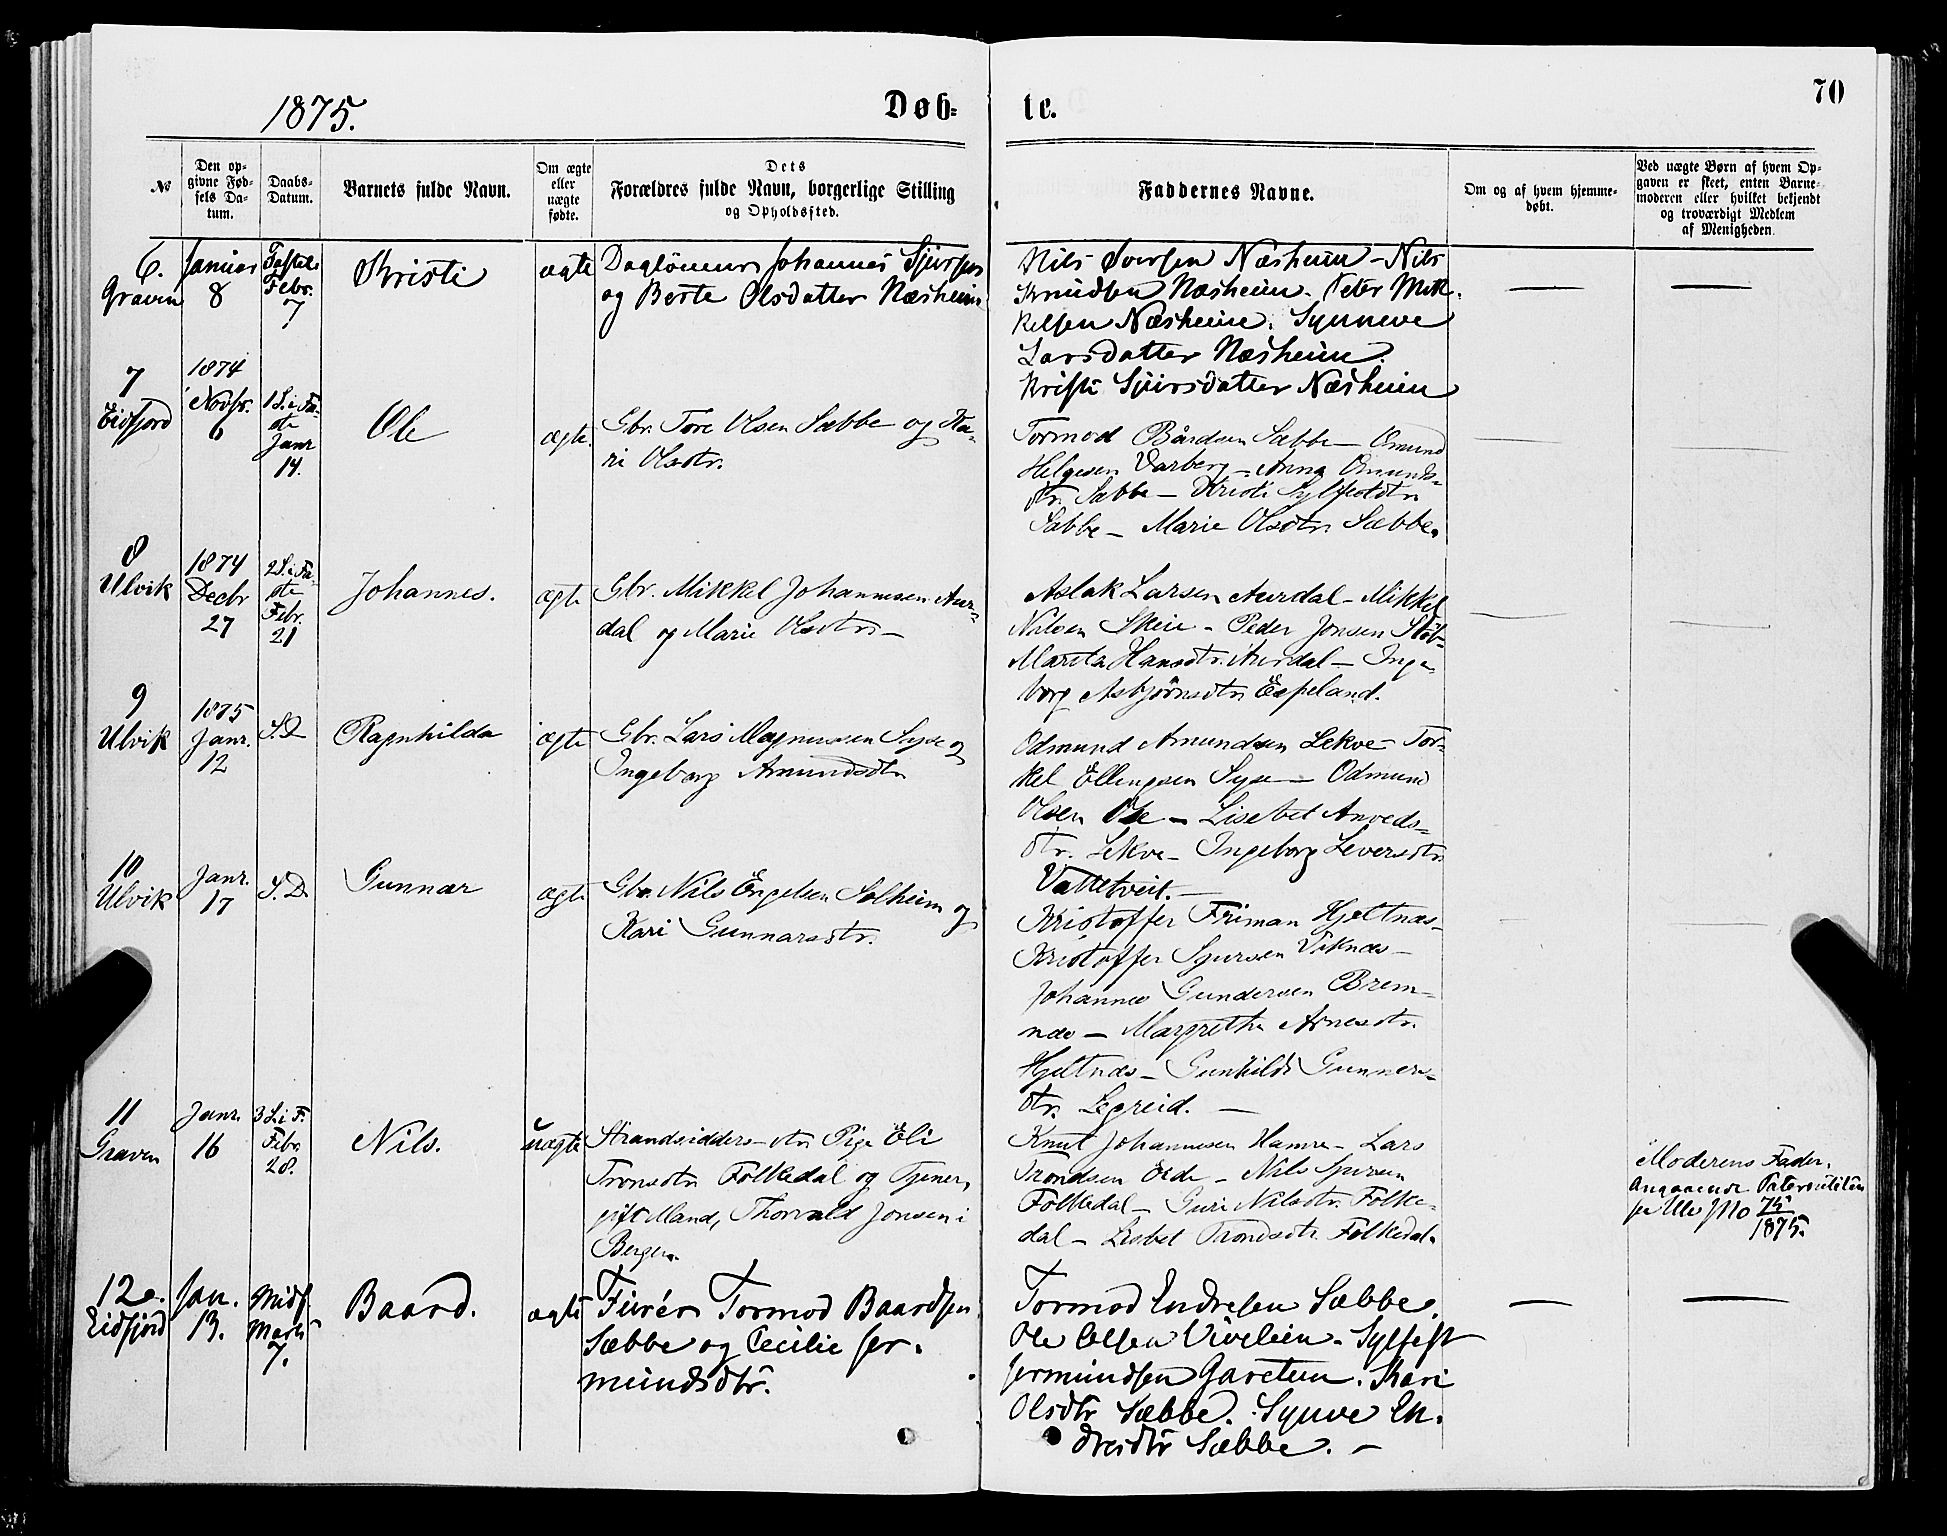 1875.
Døb-
te.
70
№
Den op-
givne Fød-
sels Da-
tum.
Daabs-
Datum.
Barnets fulde Navn.
Om ægte
eller
uægte
fødte.
Dets
Forældres fulde Navn, borgerlige Stilling
og Opholdssted.
Faddernes Navne.
Om og af hvem hjemme-
døbt.
Ved uægte Børn af hvem Op-
gaven er skeet, enten Barne-
moderen eller hvilket bekjendt
og troværdigt Medlem
af Menigheden.
6.
Graven
Januar
8
Fastel.
Febr.
7
Kristi
ægte
Daglönner Johannes Sjursen
og Berte Olsdatter Næsheim
Nils Iversen Næsheim - Nils
Knudsen Næsheim. Peter Mik-
kelsen Næsheim. Synneve
Larsdatter Næsheim.
Kristi Sjursdatter Næsheim
7
Eidfjord
1874
Novbr.
6
1 S. i Fa-
ste
Janr
14.
Ole
ægte.
Gbr. Tore Olsen Sæbbe og Ka-
ri Olsdtr.
Tormod Bårdsen Sæbbe - Omund
Helgesen Varberg - Anna Omunds-
dtr. Sæbbe - Kristi Sylfestdtr.
Sæbbe - Marie Olsdtr. Sæbbe.
8
Ulvik
1874
Decbr
27
2 S. i Fa-
ste
Febr.
21
Johannes.
ægte
Gbr. Mikkel Johannesen Aur-
dal og Marie Olsdtr. -
Aslak Larsen Aurdal - Mikkel
Nilsen Skeie - Peder Jonsen
Marita Hansdtr. Aurdal - Inge-
borg Asbjörnsdtr. Espeland.
9
Ulvik
1875
Janr.
12
S. D
Ragnhilda
ægte
Gbr. Lars Magnussen Syse og
Ingeborg Amundsdtr
Odmund Amundsen Lekve - Tor-
kel Ellingsen Syse - Odmund
Olsen Ose - Lisebet Anveds-
dtr. Lekve - Ingeborg Seversdtr.
Vattetveit. -
10
Ulvik
Janr.
17
S. D.
Gunnar
ægte
Gbr. Nils Engelsen Solheim og
Kari Gunnarsdtr.
Kristoffer Friman Hjeltnæs -
Kristoffer Sjursen Viknæs -
Johannes Gundersen Brem-
næs - Margretha Arnesdtr.
Hjeltnæs - Gunhild Gunnars-
dtr. Legreid. -
11
Graven
Janr.
16
3 S. i F.
Febr.
28.
Nils.
uægte
Strandsidder Pige Eli
Tronsdtr Folkedal og Tjener,
gift Mand, Thorvald Jonsen i
Bergen
Knut Johannesen Hamre - Lars
Trondsen Eide - Nils Sjursen
Folkedal - Guri Nilsdtr. Folke-
dal - Lisbet Trondsdtr. Folkedal.
Moderens Fader.
Angaaende Paterniteten
75
1875.
12.
Eidfjord
Jan.
13.
Midf.
Marts
7.
Baard.
ægte
Tormod Baardsen
Sæbbe og Cecilie Jer-
mundsdtr.
Tormod Endresen Sæbbe.
Ole Olsen Vivelein. Sylfest
Jermundsen Garetun. Kari
Olsdtr Sæbbe. Synve En-
dresdtr Sæbbe. -